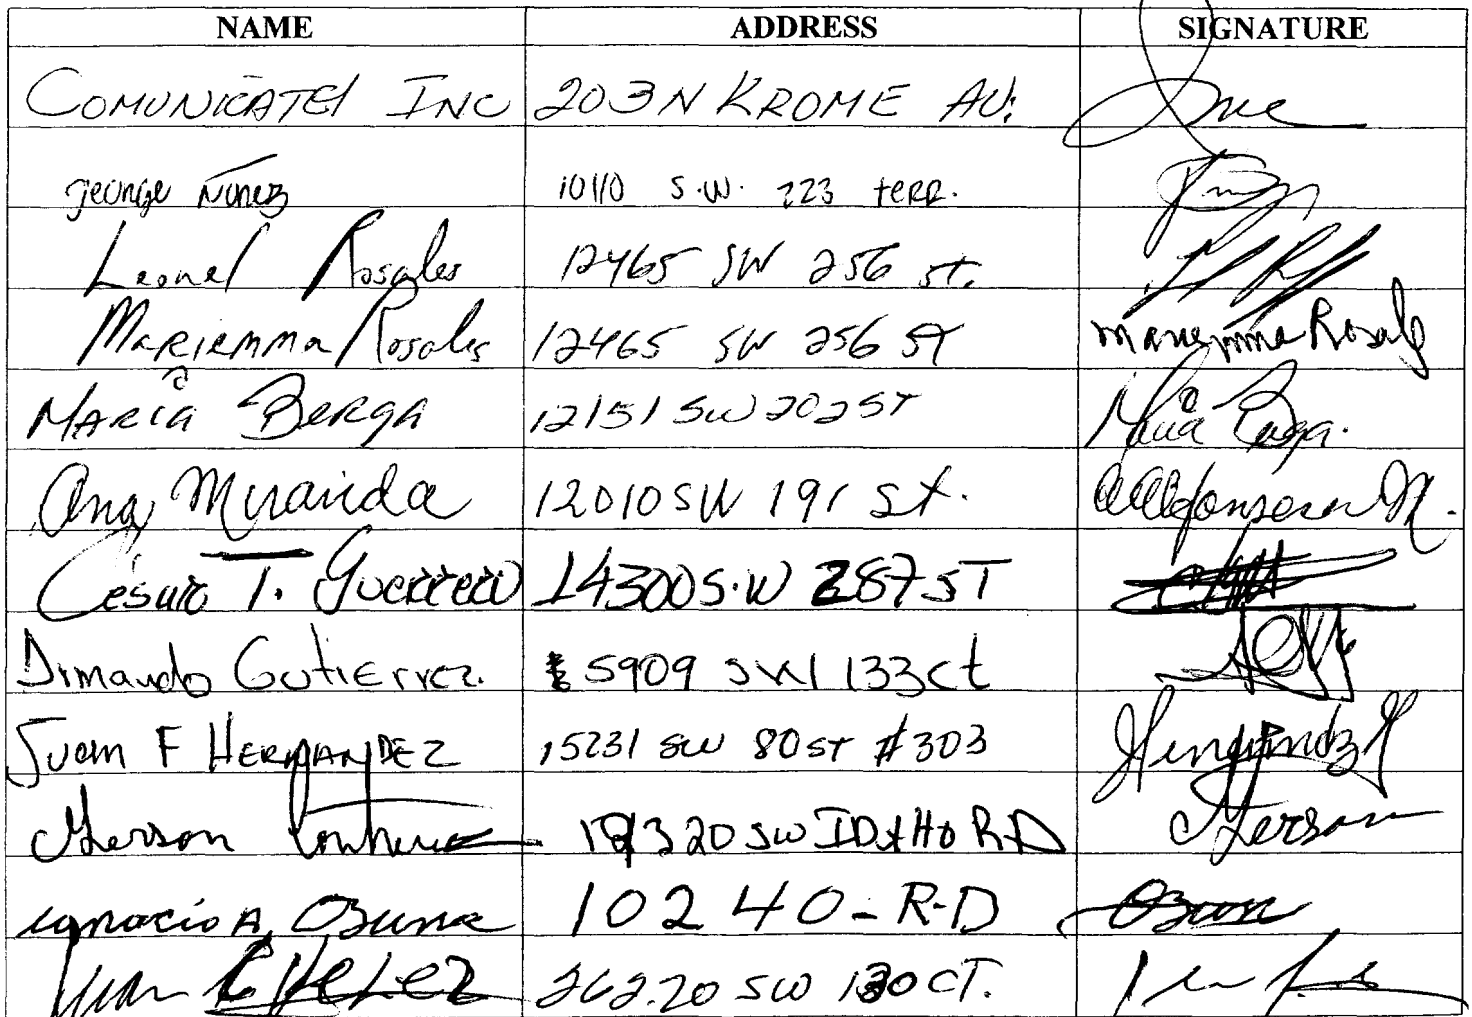 NAME ADDRESS SIGNATURE
COMUNICATEl INC 203 N KROME AV.
george Núnez 10110 S.W. 223 teRR.
Leonel Rosales 12465 SW 256 ST.
MaRiemma Rosales 12465 SW 256 ST mariemma Rosales
MARIA BeRgA 12151 SW 202 ST
Ana Miranda 12010 SW 191 St.
Cesario T. Guerrero 14300 S.W 287 ST
Gutierrez. 5909 SW 133 ct
Juan F HERNANDEZ 15231 SW 80 ST #303 Hernandez
Gerson 320 SW IDAHO RD Gerson
ignacio A, Ozuna 10240 - R-D Ozuna
Juan 26220 SW 130 CT.